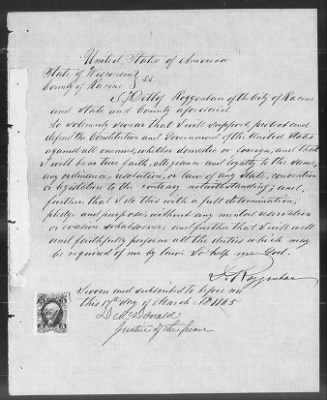 United States of America
State of Wisconsin } ss
County of Racine
I, Detlof Roggenbau of the City of Racine
and State and County aforesaid
do solemnly swear that I will support, protect and
defend the Constitution and Government of the United States
against all enemies, whether domestic or foreign, and that
I will bear true faith, allegiance and loyalty to the same,
any ordinance, resolution, or law of any State, convention
or legislature to the contrary notwithstanding; and,
further that I do this with a full determination,
pledge and purpose, without any mental reservation
or evasion whatsoever; and further that I will well
and faithfully perform all the duties which may
be required of me by law. So help me God.
Roggenbau
Sworn and subscribed to before me
this 17th day of March 1865
D McDonald
Justice of the Peace